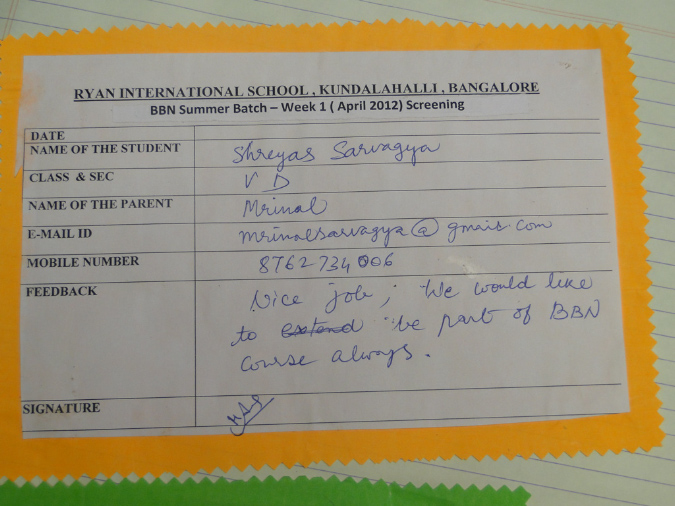 RYAN INTERNATIONAL SCHOOL , KUNDALAHALLI , BANGALORE
BBN Summer Batch – Week 1 ( April 2012) Screening
DATE
NAME OF THE STUDENT Shreyas Sarvagya
CLASS & SEC V D
NAME OF THE PARENT Mrinal
E-MAIL ID mrinalsarvagya@gmail.com
MOBILE NUMBER 8762734006
FEEDBACK Nice job; We would like
to extend be part of BBN
course always.
SIGNATURE